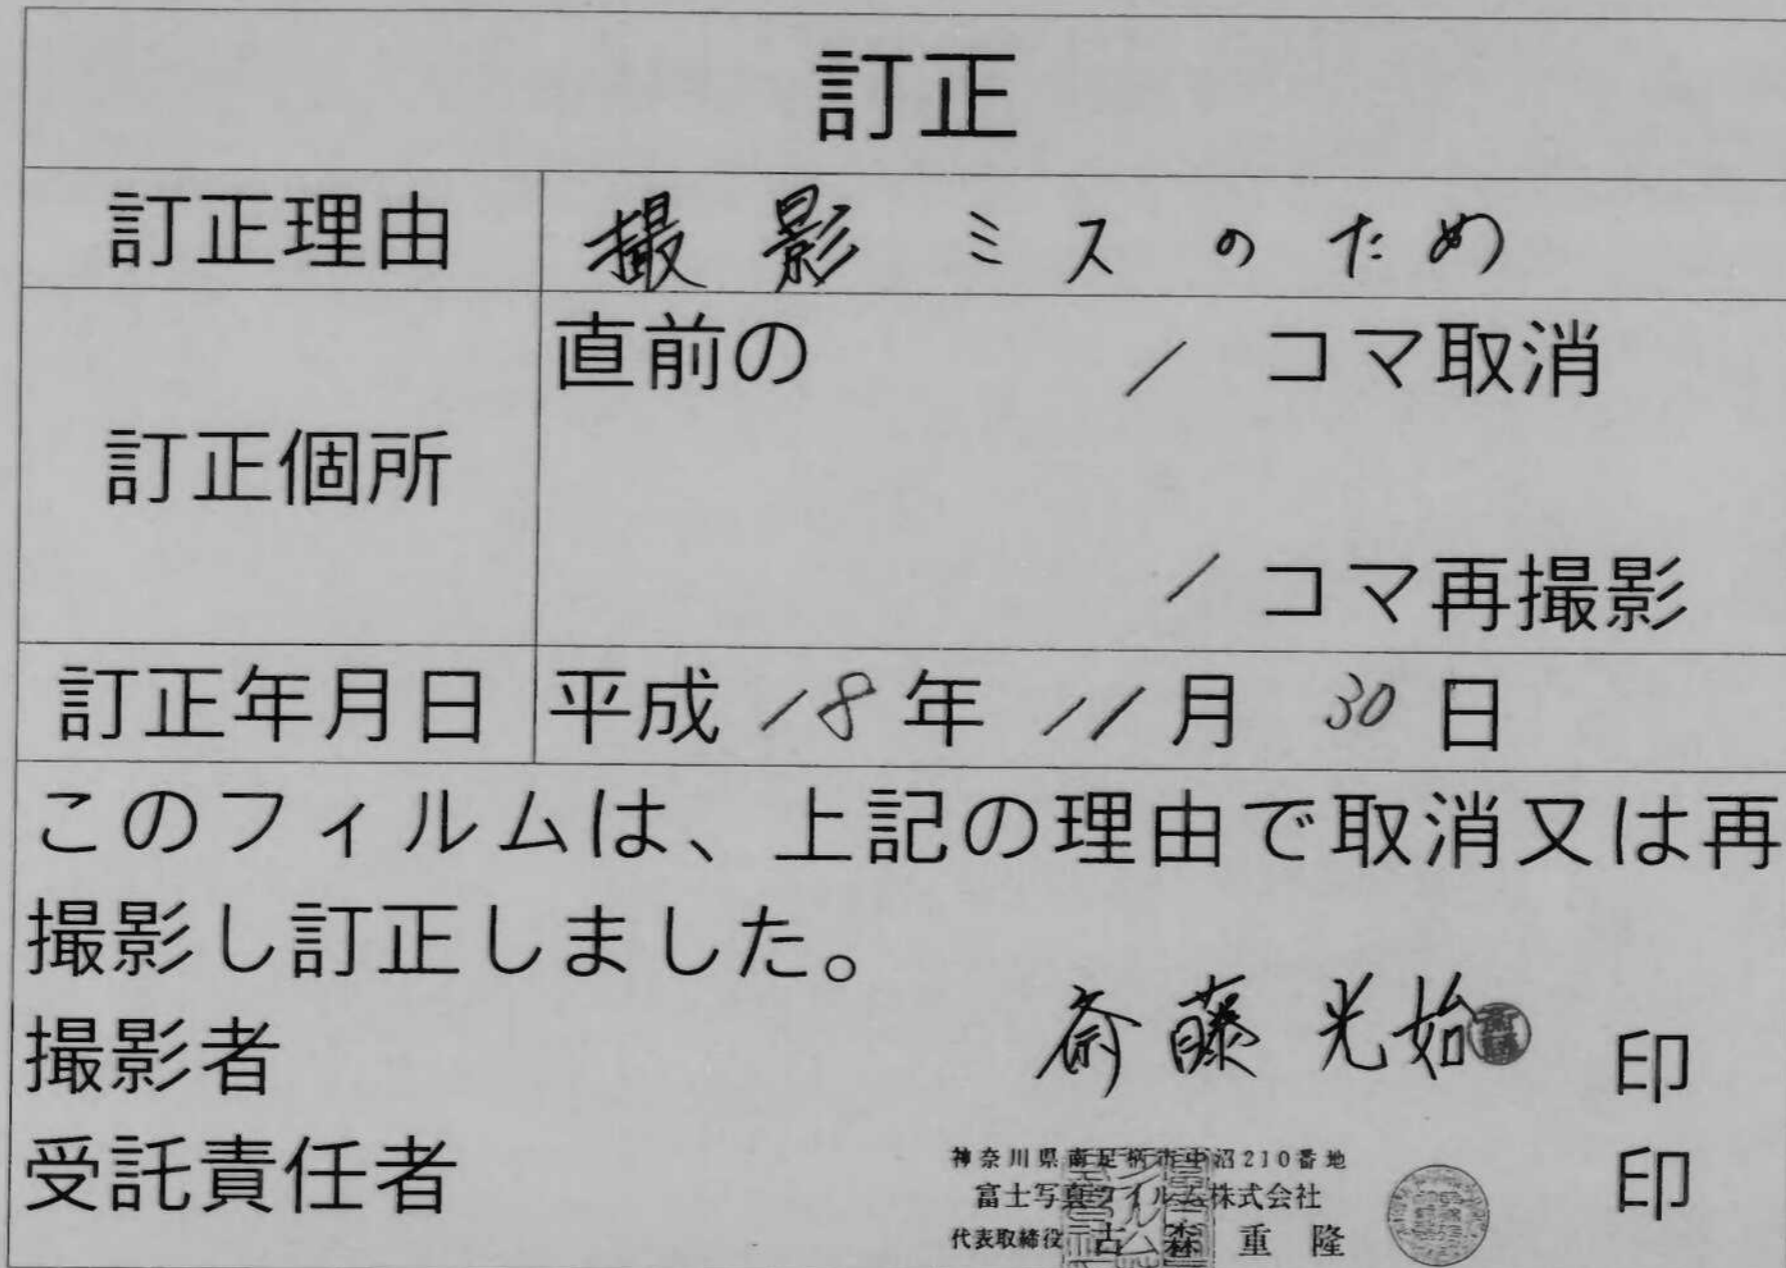 訂正
訂正理由 撮影ミスのため
訂正個所 直前の 1 コマ取消
1 コマ再撮影
訂正年月日 平成 18 年 11 月 30 日
このフィルムは、上記の理由で取消又は再
撮影し訂正しました。
撮影者 斎藤光始 印
受託責任者 印
神奈川県南足柄市中沼210番地
富士写真フイルム株式会社
代表取締役 古森重隆